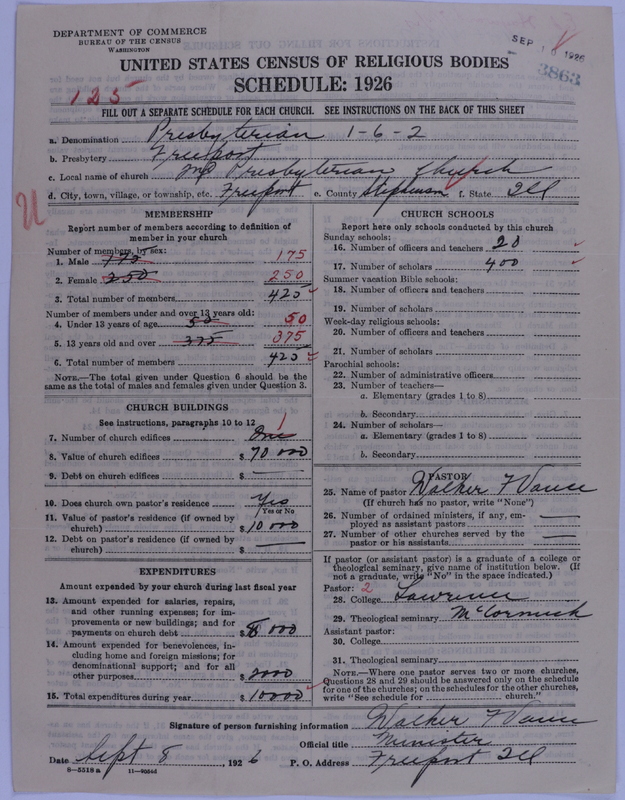 DEPARTMENT OF COMMERCE
BUREAU OF THE CENSUS
WASHINGTON
SEP 10 1926
3863
UNITED STATES CENSUS OF RELIGIOUS BODIES
SCHEDULE: 1926
125
FILL OUT A SEPARATE SCHEDULE FOR EACH CHURCH. SEE INSTRUCTIONS ON THE BACK OF THIS SHEET
a. Denomination Presbyterian 1-6-2
b. Presbytery Freeport
c. Local name of church 2nd Presbyterian Church
d. City, town, village, or township, etc. Freeport e. County Stephenson f. State Ill
U
MEMBERSHIP
Report number of members according to definition of
member in your church
Number of members, by sex:
1. Male 175 175
2. Female 250 250
3. Total number of members 425
Number of members under and over 13 years old:
4. Under 13 years of age 50 50
5. 13 years old and over 375 375
6. Total number of members 425
NOTE.—The total given under Question 6 should be the
same as the total of males and females given under Question 3.
CHURCH BUILDINGS
See instructions, paragraphs 10 to 12
7. Number of church edifices One 1
8. Value of church edifices $ 70 000
9. Debt on church edifices $
10. Does church own pastor's residence Yes
Yes or No
11. Value of pastor's residence (if owned by
church) $ 10 000
12. Debt on pastor's residence (if owned by
church) $
EXPENDITURES
Amount expended by your church during last fiscal year
13. Amount expended for salaries, repairs,
and other running expenses; for im-
provements or new buildings; and for
payments on church debt $ 8 000
14. Amount expended for benevolences, in-
cluding home and foreign missions; for
denominational support; and for all
other purposes $ 2000
15. Total expenditures during year $ 10000
CHURCH SCHOOLS
Report here only schools conducted by this church
Sunday schools:
16. Number of officers and teachers 20
17. Number of scholars 400
Summer vacation Bible schools:
18. Number of officers and teachers
19. Number of scholars
Week-day religious schools:
20. Number of officers and teachers
21. Number of scholars
Parochial schools:
22. Number of administrative officers
23. Number of teachers—
a. Elementary (grades 1 to 8)
b. Secondary
24. Number of scholars—
a. Elementary (grades 1 to 8)
b. Secondary
PASTOR
25. Name of pastor Walker F Vance
(If church has no pastor, write "None")
26. Number of ordained ministers, if any, em-
ployed as assistant pastors
27. Number of other churches served by the
pastor or his assistants
If pastor (or assistant pastor) is a graduate of a college or
theological seminary, give name of institution below. (If
not a graduate, write "No" in the space indicated.)
Pastor: 2
28. College Lawrence
29. Theological seminary McCormick
Assistant pastor:
30. College
31. Theological seminary
NOTE.—Where one pastor serves two or more churches,
Questions 28 and 29 should be answered only on the schedule
for one of the churches; on the schedules for the other churches,
write "See schedule for church."
Signature of person furnishing information Walker F Vance
Official title Minister
Date Sept 8 1926 P. O. Address Freeport Ill
8—5518 a 11—9664d